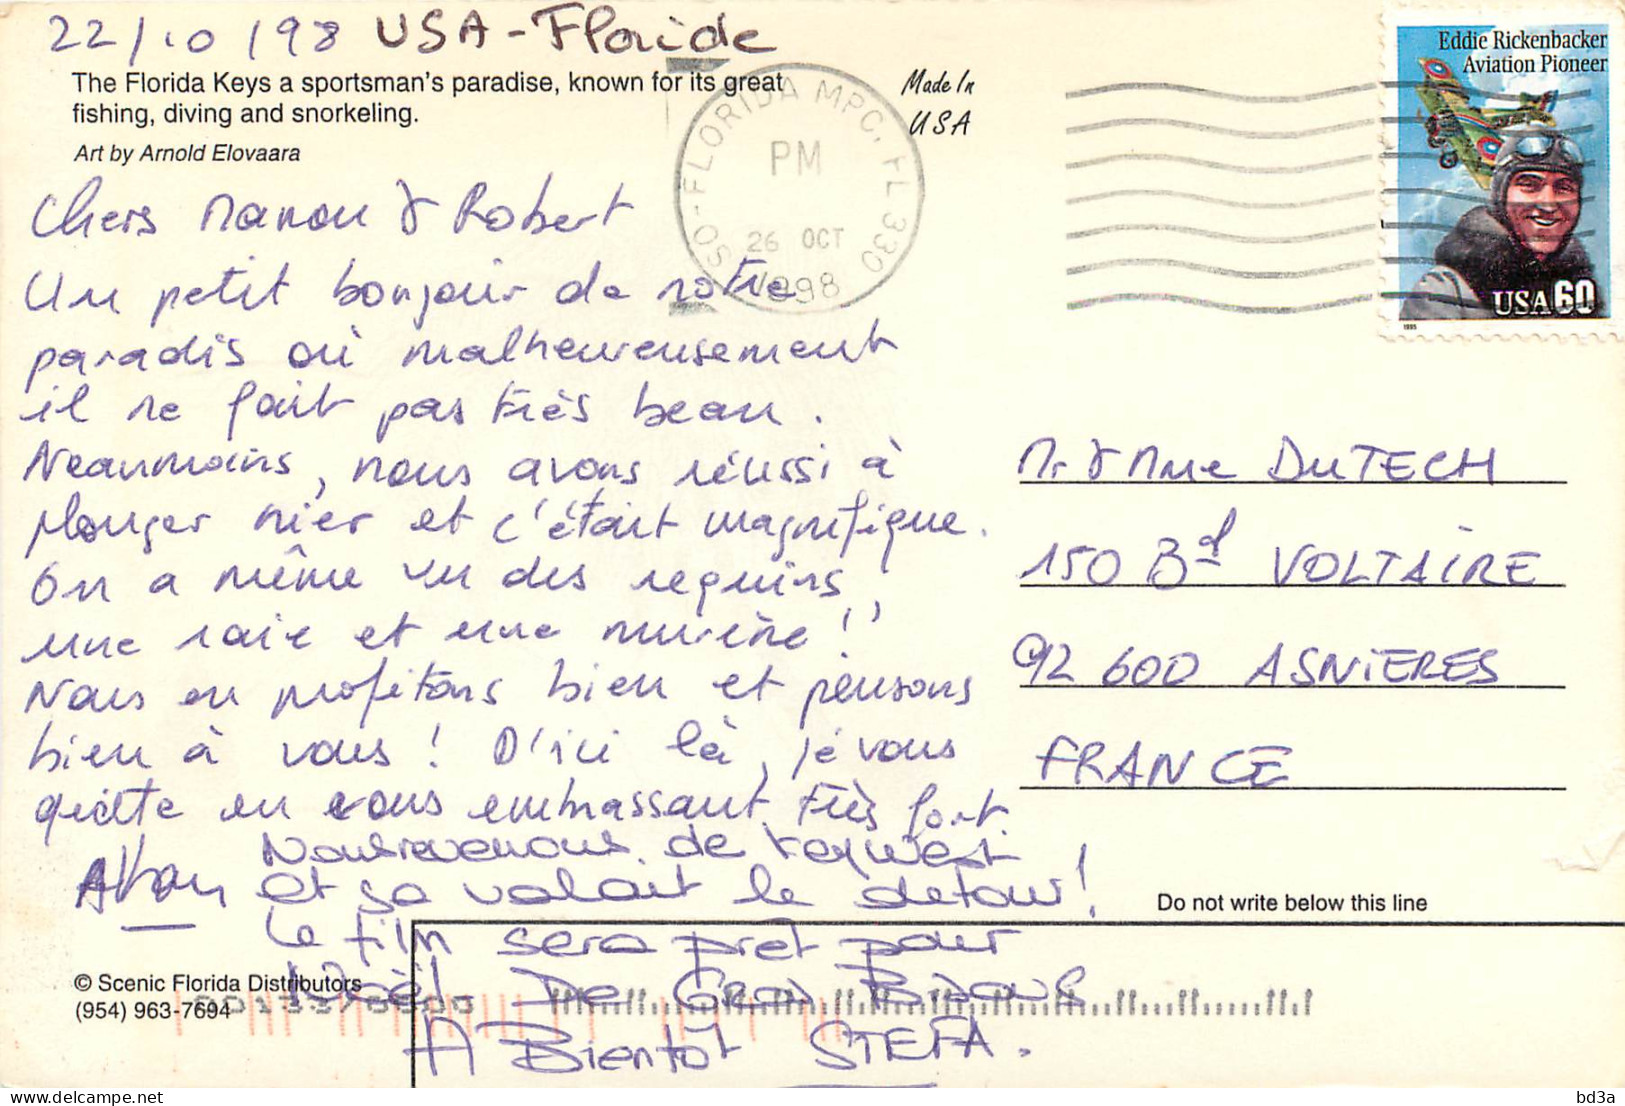 22/10/98 USA-Floride
The Florida Keys a sportsman's paradise, known for its great
fishing, diving and snorkeling.
Art by Arnold Elovaara
Made In
USA
SO-FLORIDA MPC, FL 330
PM
26 OCT
1998
Eddie Rickenbacker
Aviation Pioneer
USA60
1995
Chers Manou & Robert
Un petit bonjour de notre
paradis où malheureusement
il ne fait pas très beau.
Neanmoins, nous avons réussi à
plonger hier et c'était magnifique.
On a même vu des requins,
une raie et une murène!!
Nous en profitons bien et pensons
bien à vous! D'ici là, je vous
quitte en vous embrassant très fort.
Alban
Nous revenons de keywest
et sa valait le detour!
Le film sera pret pour
Noël De Gros Bisous
A Bientot STEFA.
Mr & Mme DUTECH
150 Bd VOLTAIRE
92 600 ASNIERES
FRANCE
Do not write below this line
© Scenic Florida Distributors
(954) 963-7694
bd3a